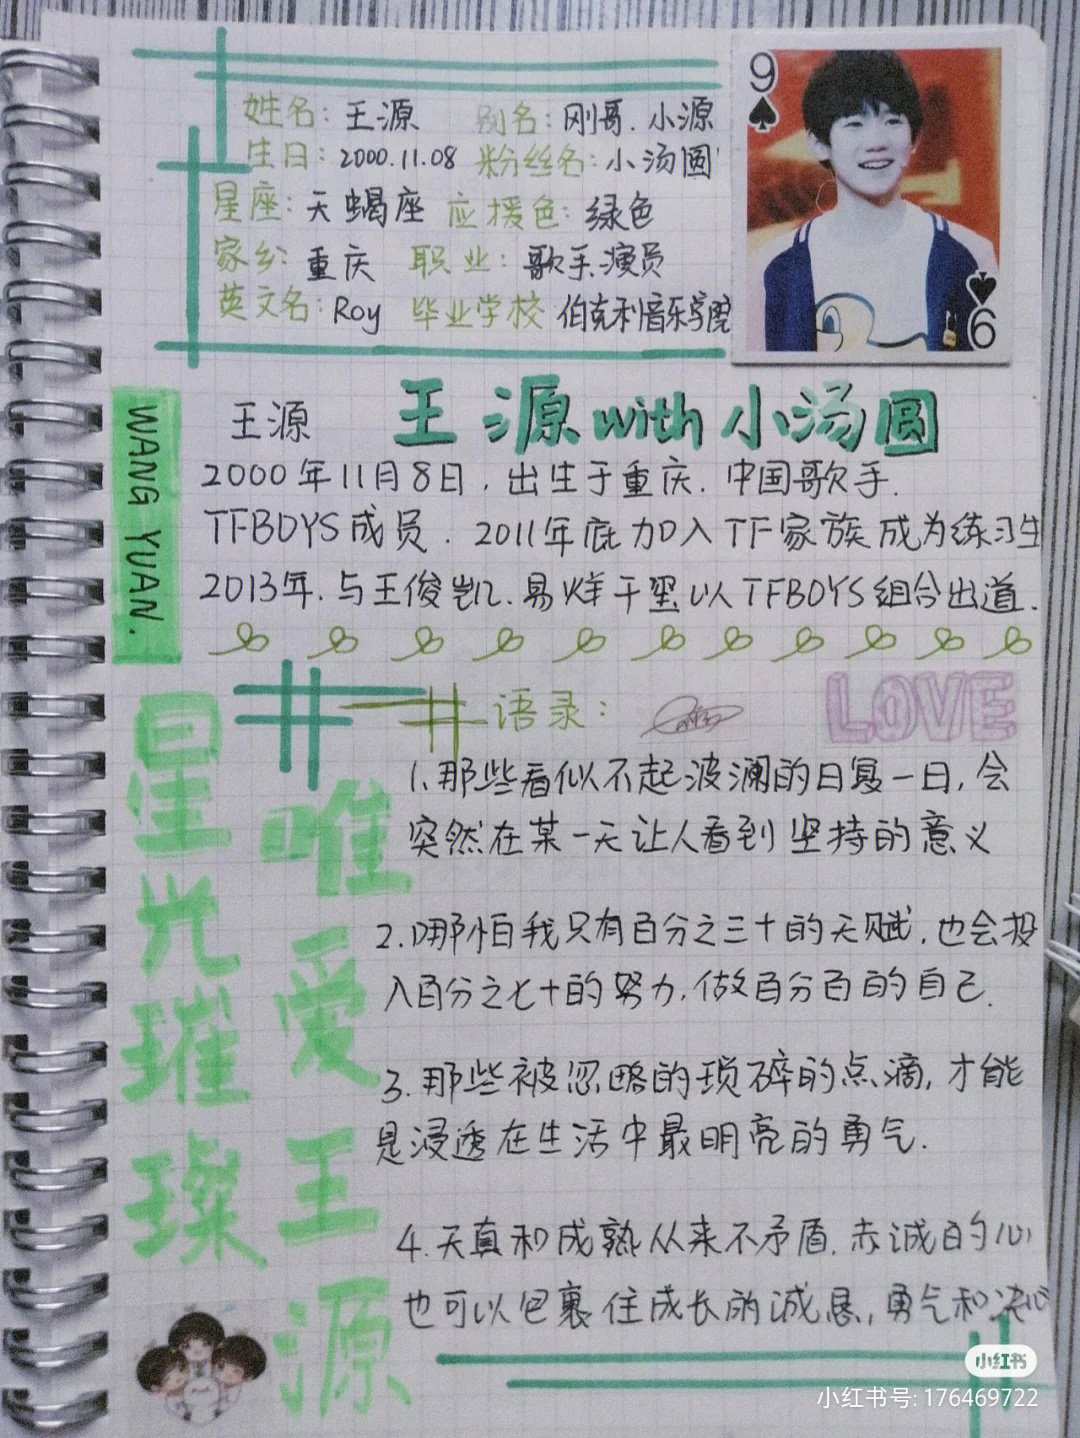 姓名：王源 别名：刚哥、小源
生日：2000.11.08 粉丝名：小汤圆
星座：天蝎座 应援色：绿色
家乡：重庆 职业：歌手、演员
英文名：Roy 毕业学校 伯克利音乐学院
9
9
WANG YUAN.
王源with小汤圆
王源
2000年11月8日，出生于重庆.中国歌手.
TFBOYS成员.2011年底加入TF家族成为练习生
2013年.与王俊凯.易烊千玺以TFBOYS组合出道.
语录：
LOVE
星光璀璨
唯爱王源
1.那些看似不起波澜的日复一日,会
突然在某一天让人看到坚持的意义
2.哪怕我只有百分之三十的天赋,也会投
入百分之七十的努力,做百分百的自己.
3.那些被忽略的琐碎的点滴,才能
是浸透在生活中最明亮的勇气.
4.天真和成熟从来不矛盾.赤诚的心
也可以包裹住成长的诚恳,勇气和决心
小红书
小红书号: 176469722